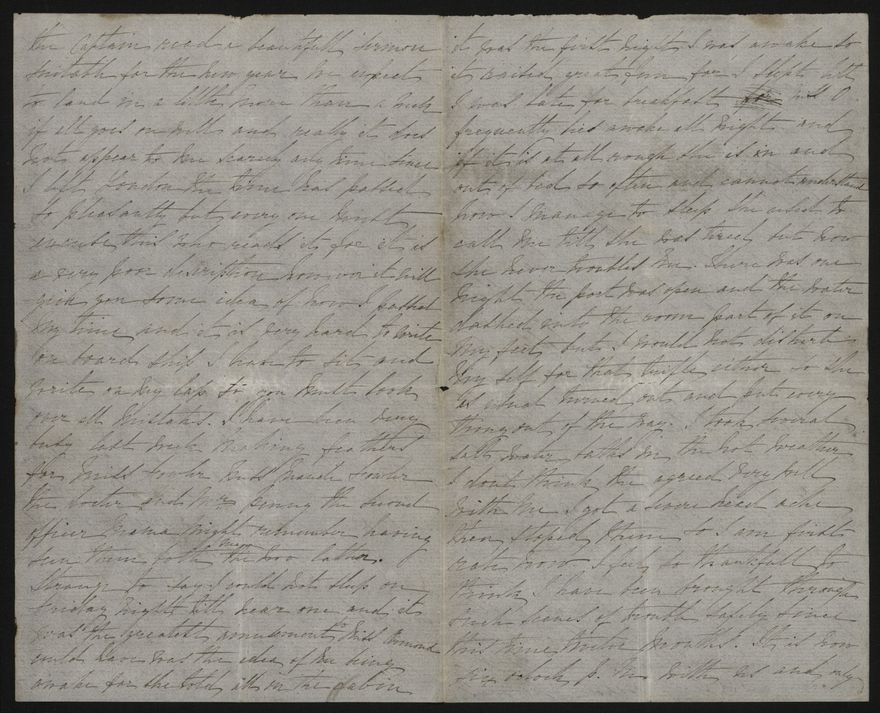 the Captain read a beautifull sermon
suitable for the new year we expect
to land in a little more than a week
if all goes on well and really it does
not appear to me scarcely any time since
I left London the time has passed
so pleasantly but every one must
excuse this who reads it for it is
a very poor description however it will
give you some idea of how I passed
my time and it is very hard to write
on board ship I have to sit and
write on my lap so you must look
over all mistakes. I have been very
busy last week making feathers
for Miss Fowler Miss Maude Fowler
the doctor and Mr Penny the second
officer Mama might remember having
seen them both the two latter.
Strange to say I could not sleep on
Friday night till near one and it
was the greatest amusement Miss
could have was the idea of me being
awake for she told all in the cabin
it was the first night I was awake so
it caused great fun for I slept till
I was late for breakfast Miss O
frequently lies awake all night and
if it is at all rough she is in and
out of bed so often and cannot understand
how I manage to sleep she used to
call me till she was tired but now
she never troubles me. There was one
night the port was open and the water
dashed into the room part of it on
my feet but I would not disturb
my self for that trifle either so she
as usual turned out and put every
thing out of the way. I took several
salt water baths in the hot weather
I dont think the agreed very well
with me I got a severe head ache
then stoped them so I am first
rate now I feel so thankfull to
think I have been brought through
such scenes of trouble safely since
this time twelve months. It is now
six oclock P. M with us and only